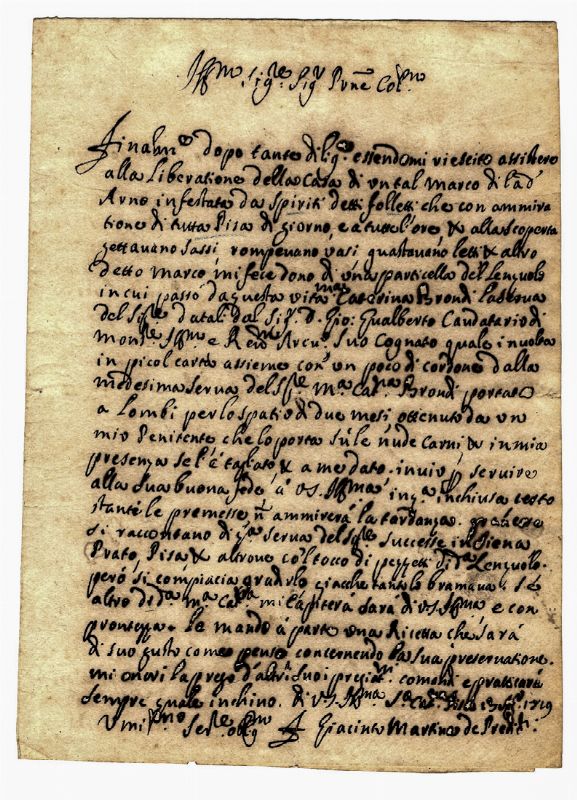 Sig:re Sig:r P'rone Col:mo
Finalm:e dopo tante dilig:e essendomi riescito assistere
alla Liberatione della Casa di un tal Marco di Lad
Arno infestata da spiriti detti folletti che con ammira
tione di tutta Pisa di giorno, e a tutte l'ore, & alla scoperta
gettavano sassi, rompevano vasi guastavano letti & altro
detto Marco mi fece dono di una particella del Lenzuolo
in cui passò da questa vita m.a Caterina Brondi la serva
del Sig:re datali dal Sig.r D. Gio: Gualberto Caudatario di
Mons:re Ill:mo e Rev:mo Arcv:o suo Cognato quale involta
in picol carta assieme con un poco di cordone dalla
medesima serva del Sig:re m.a Cat:na Brondi portato
a Lombi per lo spatio di due mesi ottenuto da un
mio Penitente che lo porta sù le nude Carni & in mia
presenza se l'è tagliato & a me dato. invio p servire
alla sua buona fede à VS. Ill:ma in q.a inchiusa testo
stante le premesse ammirerà la tardanza. gratie che
si raccontano di q.a serva del Sig:re successe in Siena
Prato, Pisa & altrove col tocco di pezzetti di d.o Lenzuolo.
però si compiacia gradirlo giacche tanto lo bramava. Se
altro di d.a m.a Cat:na mi capiterà sarà di VS. Ill:ma e con
prontezza. Le mando à parte una Ricetta che sarà
di suo gusto come penso concernendo la sua preservatione.
mi onori la prego d'altri suoi preg:mi comandi e pratticarà
sempre quale inchino. di VS. Ill:ma 1719
Umi:mo Ser:re obl:mo Giacinto Martino de